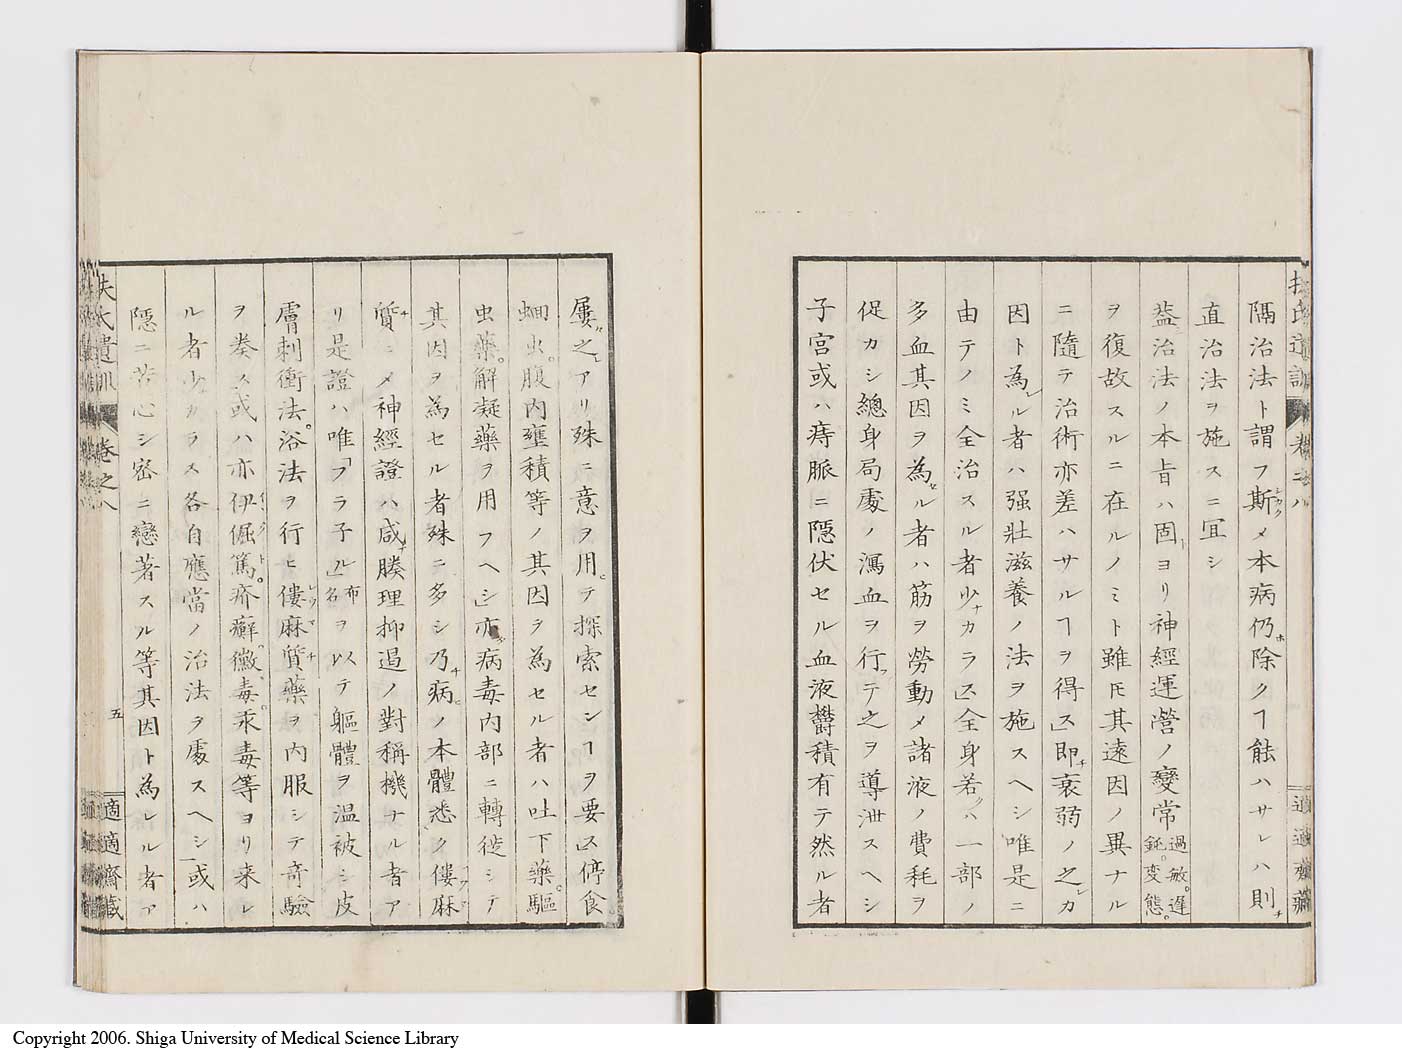 隔治法ト謂フ斯メ本病仍除クヿ能ハサレハ則
直治法ヲ施スニ冝シ
葢治法ノ本旨ハ固ヨリ神經運營ノ變常過敏。遲鈍。変態。
ヲ復故スルニ在ルノミト雖𪜈其遠因ノ異ナル
ニ隨テ治術亦差ハサルヿヲ得ス」即衰弱ノ之カ
因ト為ル者ハ强壯滋養ノ法ヲ施スヘシ唯是ニ
由テノミ全治スル者少カラス」全身若ハ一部ノ
多血其因ヲ為ル者ハ筋ヲ勞動メ諸液ノ費耗ヲ
促カシ總身局處ノ瀉血ヲ行テ之ヲ導泄スヘシ
子宮或ハ痔脈ニ隠伏セル血液欝積有テ然ル者
屢之アリ殊ニ意ヲ用テ探索センヿヲ要ス」停食
蛔虫。腹内壅積等ノ其因ヲ為セル者ハ吐下藥。驅
虫藥。解凝藥ヲ用フヘシ」亦病毒内部ニ轉徙シテ
其因ヲ為セル者殊ニ多シ乃病ノ本體悉ク僂麻
質ニメ神經證ハ咸腠理抑遏ノ對稱機ナル者ア
リ是證ハ唯「フラ子ル」布名ヲ以テ軀體ヲ温被シ皮
膚刺衝法。浴法ヲ行ヒ僂麻質藥ヲ内服シテ奇驗
ヲ奏ス或ハ亦伊倔篤。疥癬。黴毒。汞毒等ヨリ来レ
ル者少カラス各自應當ノ治法ヲ處スヘシ」或ハ
隠ニ苦心シ密ニ戀著スル等其因ト為レル者ア
扶氏遺訓 卷之八 五 適適齋藏